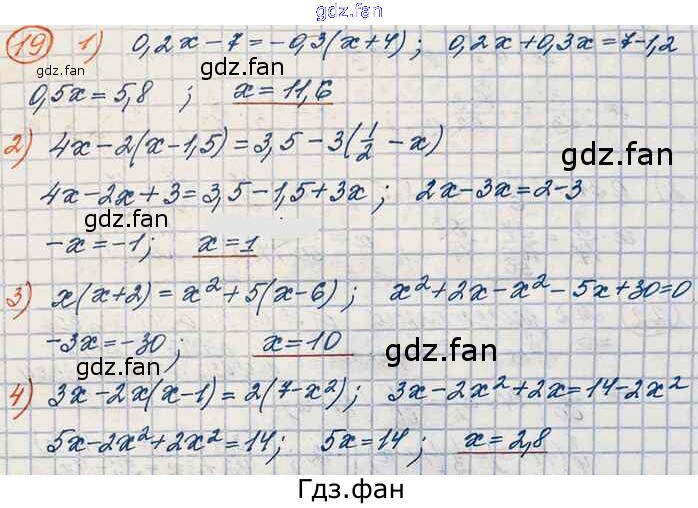 gdz.fan
19 1) 0,2x-7=-0,3(x+4); 0,2x+0,3x=7-1,2
gdz.fan gdz.fan
0,5x=5,8 ; x=11,6
2) 4x-2(x-1,5)=3,5-3(1/2-x)
gdz.fan
4x-2x+3=3,5-1,5+3x; 2x-3x=2-3
gdz.fan gdz.fan
-x=-1; x=1
3) x(x+2)=x²+5(x-6); x²+2x-x²-5x+30=0
-3x=-30; x=10
gdz.fan gdz.fan
4) 3x-2x(x-1)=2(7-x²); 3x-2x²+2x=14-2x²
5x-2x²+2x²=14; 5x=14; x=2,8
gdz.fan
Гдз.фан